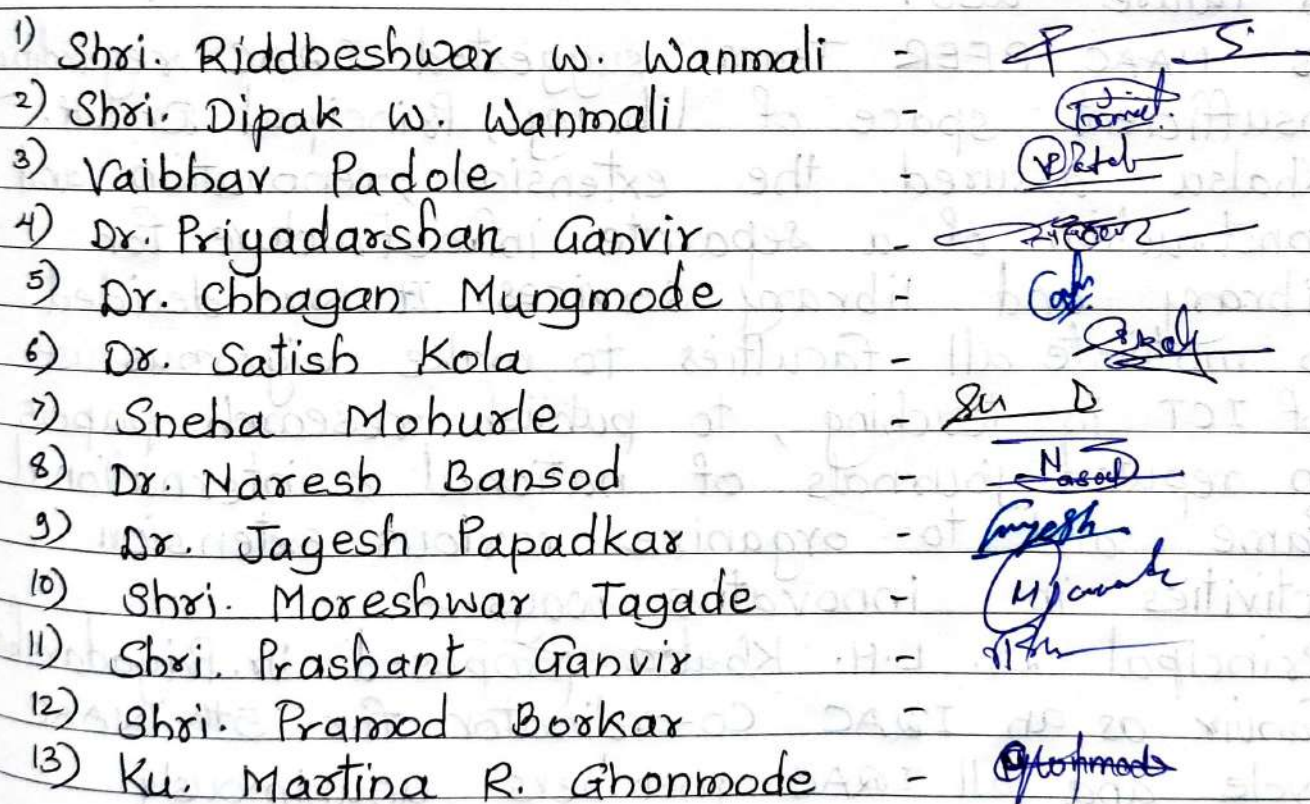 1) Shri. Riddheshwar W. Wanmali -
2) Shri. Dipak W. Wanmali -
3) Vaibhav Padole -
4) Dr. Priyadarshan Ganvir -
5) Dr. Chhagan Mungmode -
6) Dr. Satish Kola -
7) Sneha Mohurle -
8) Dr. Naresh Bansod -
9) Dr. Jagesh Papadkar -
10) Shri. Moreshwar Tagade -
11) Shri. Prashant Ganvir -
12) Shri. Pramod Borkar -
13) Ku. Martina R. Ghonmode -